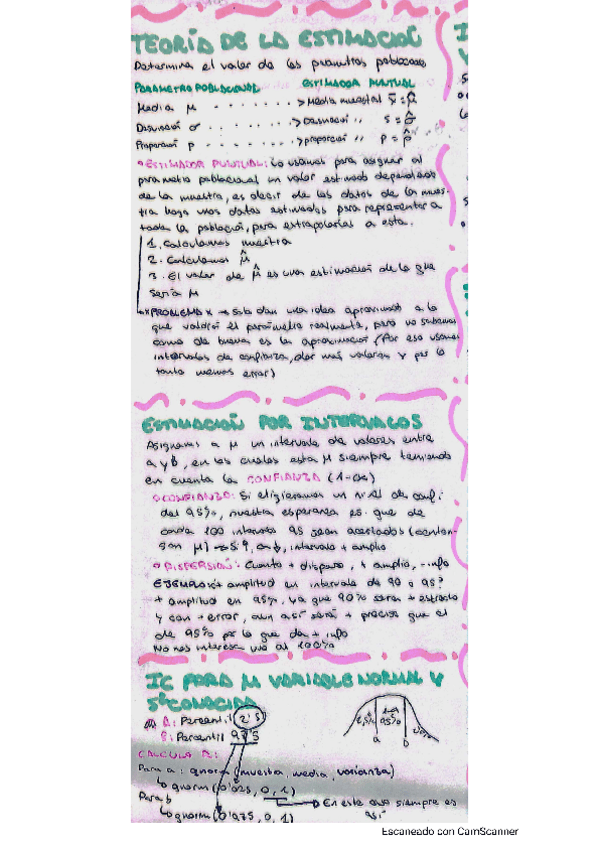 TEORÍA DE LA ESTIMACIÓN
Determina el valor de los parámetros poblacionales
PARAMETRO POBLACIONAL ESTIMADOR PUNTUAL
Media μ - - - - - - - > Media muestral x̄ = μ̂
Desviación σ - - - - - - - > Desviación " s = σ̂
Proporción p - - - - - - - > proporción " p = p̂
• ESTIMADOR PUNTUAL: Lo usamos para asignar al
parametro poblacional un valor estimado dependiendo
de la muestra, es decir de los datos de la mues-
tra hago unos datos estimados para representar a
toda la población, para extrapolarlos a esta.
1. Calculamos muestra
2. Calculamos μ̂
3. El valor de μ̂ es una estimación de lo que
sería μ
*PROBLEMA* → Solo dan una idea aproximada a lo
que valdría el parámetro realmente, pero no sabemos
como de buena es la aproximación (Por eso usamos
intervalos de confianza, dar más valores y por lo
tanto menos error)
ESTIMACIÓN POR INTERVALOS
Asignamos a μ un intervalo de valores entre
a y b, en los cuales esta μ siempre teniendo
en cuenta la CONFIANZA (1-α)
◦ CONFIANZA: Si eligieramos un nivel de confi.
del 95%, nuestra esperanza es que de
cada 100 intervalos 95 sean acertados (conten-
gan μ) → intervalo + amplio
◦ DISPERSIÓN: Cuanto + disperso, + amplio, - info
EJEMPLO: + amplitud en intervalo de 90 o 95?
+ amplitud en 95%, ya que 90% sera + estrecho
y con + error, aun así será + preciso que el
de 95% por lo que da + info
No nos interesa uno al 100%
IC PARA μ VARIABLE NORMAL Y
σ² CONOCIDA
A: Percentil 2'5
B: Percentil 97'5
2,5% 95% 2,5%
a b
CALCULA R:
Para a: qnorm (muestra, media, varianza)
↳ qnorm (0'025, 0, 1)
Para b → En este caso siempre es
↳ qnorm (0'975, 0, 1) así
Escaneado con CamScanner